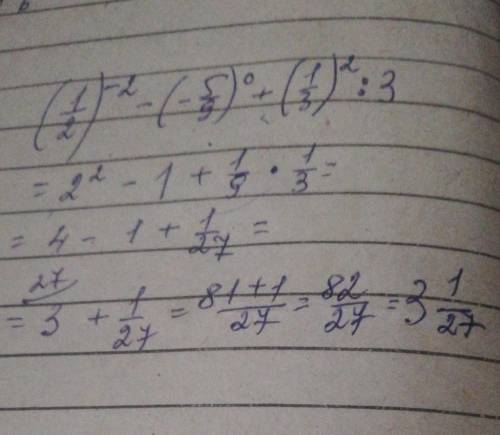 (1/2)^-2 - (-5/9)^0 + (1/3)^2 : 3
= 2^2 - 1 + 1/9 · 1/3 =
= 4 - 1 + 1/27 =
= 3^27/ + 1/27 = 81+1/27 = 82/27 = 3 1/27